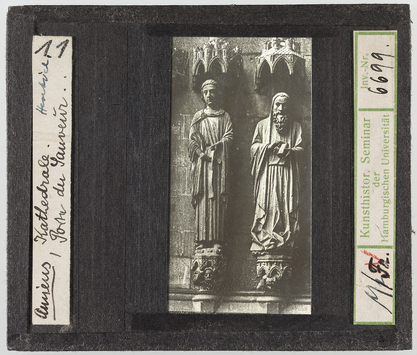 11
Amiens, Kathedrale.
Porte du Sauveur..
Kunsthistor. Seminar
der
Hamburgischen Universität
Inv.-Nr.
6699.